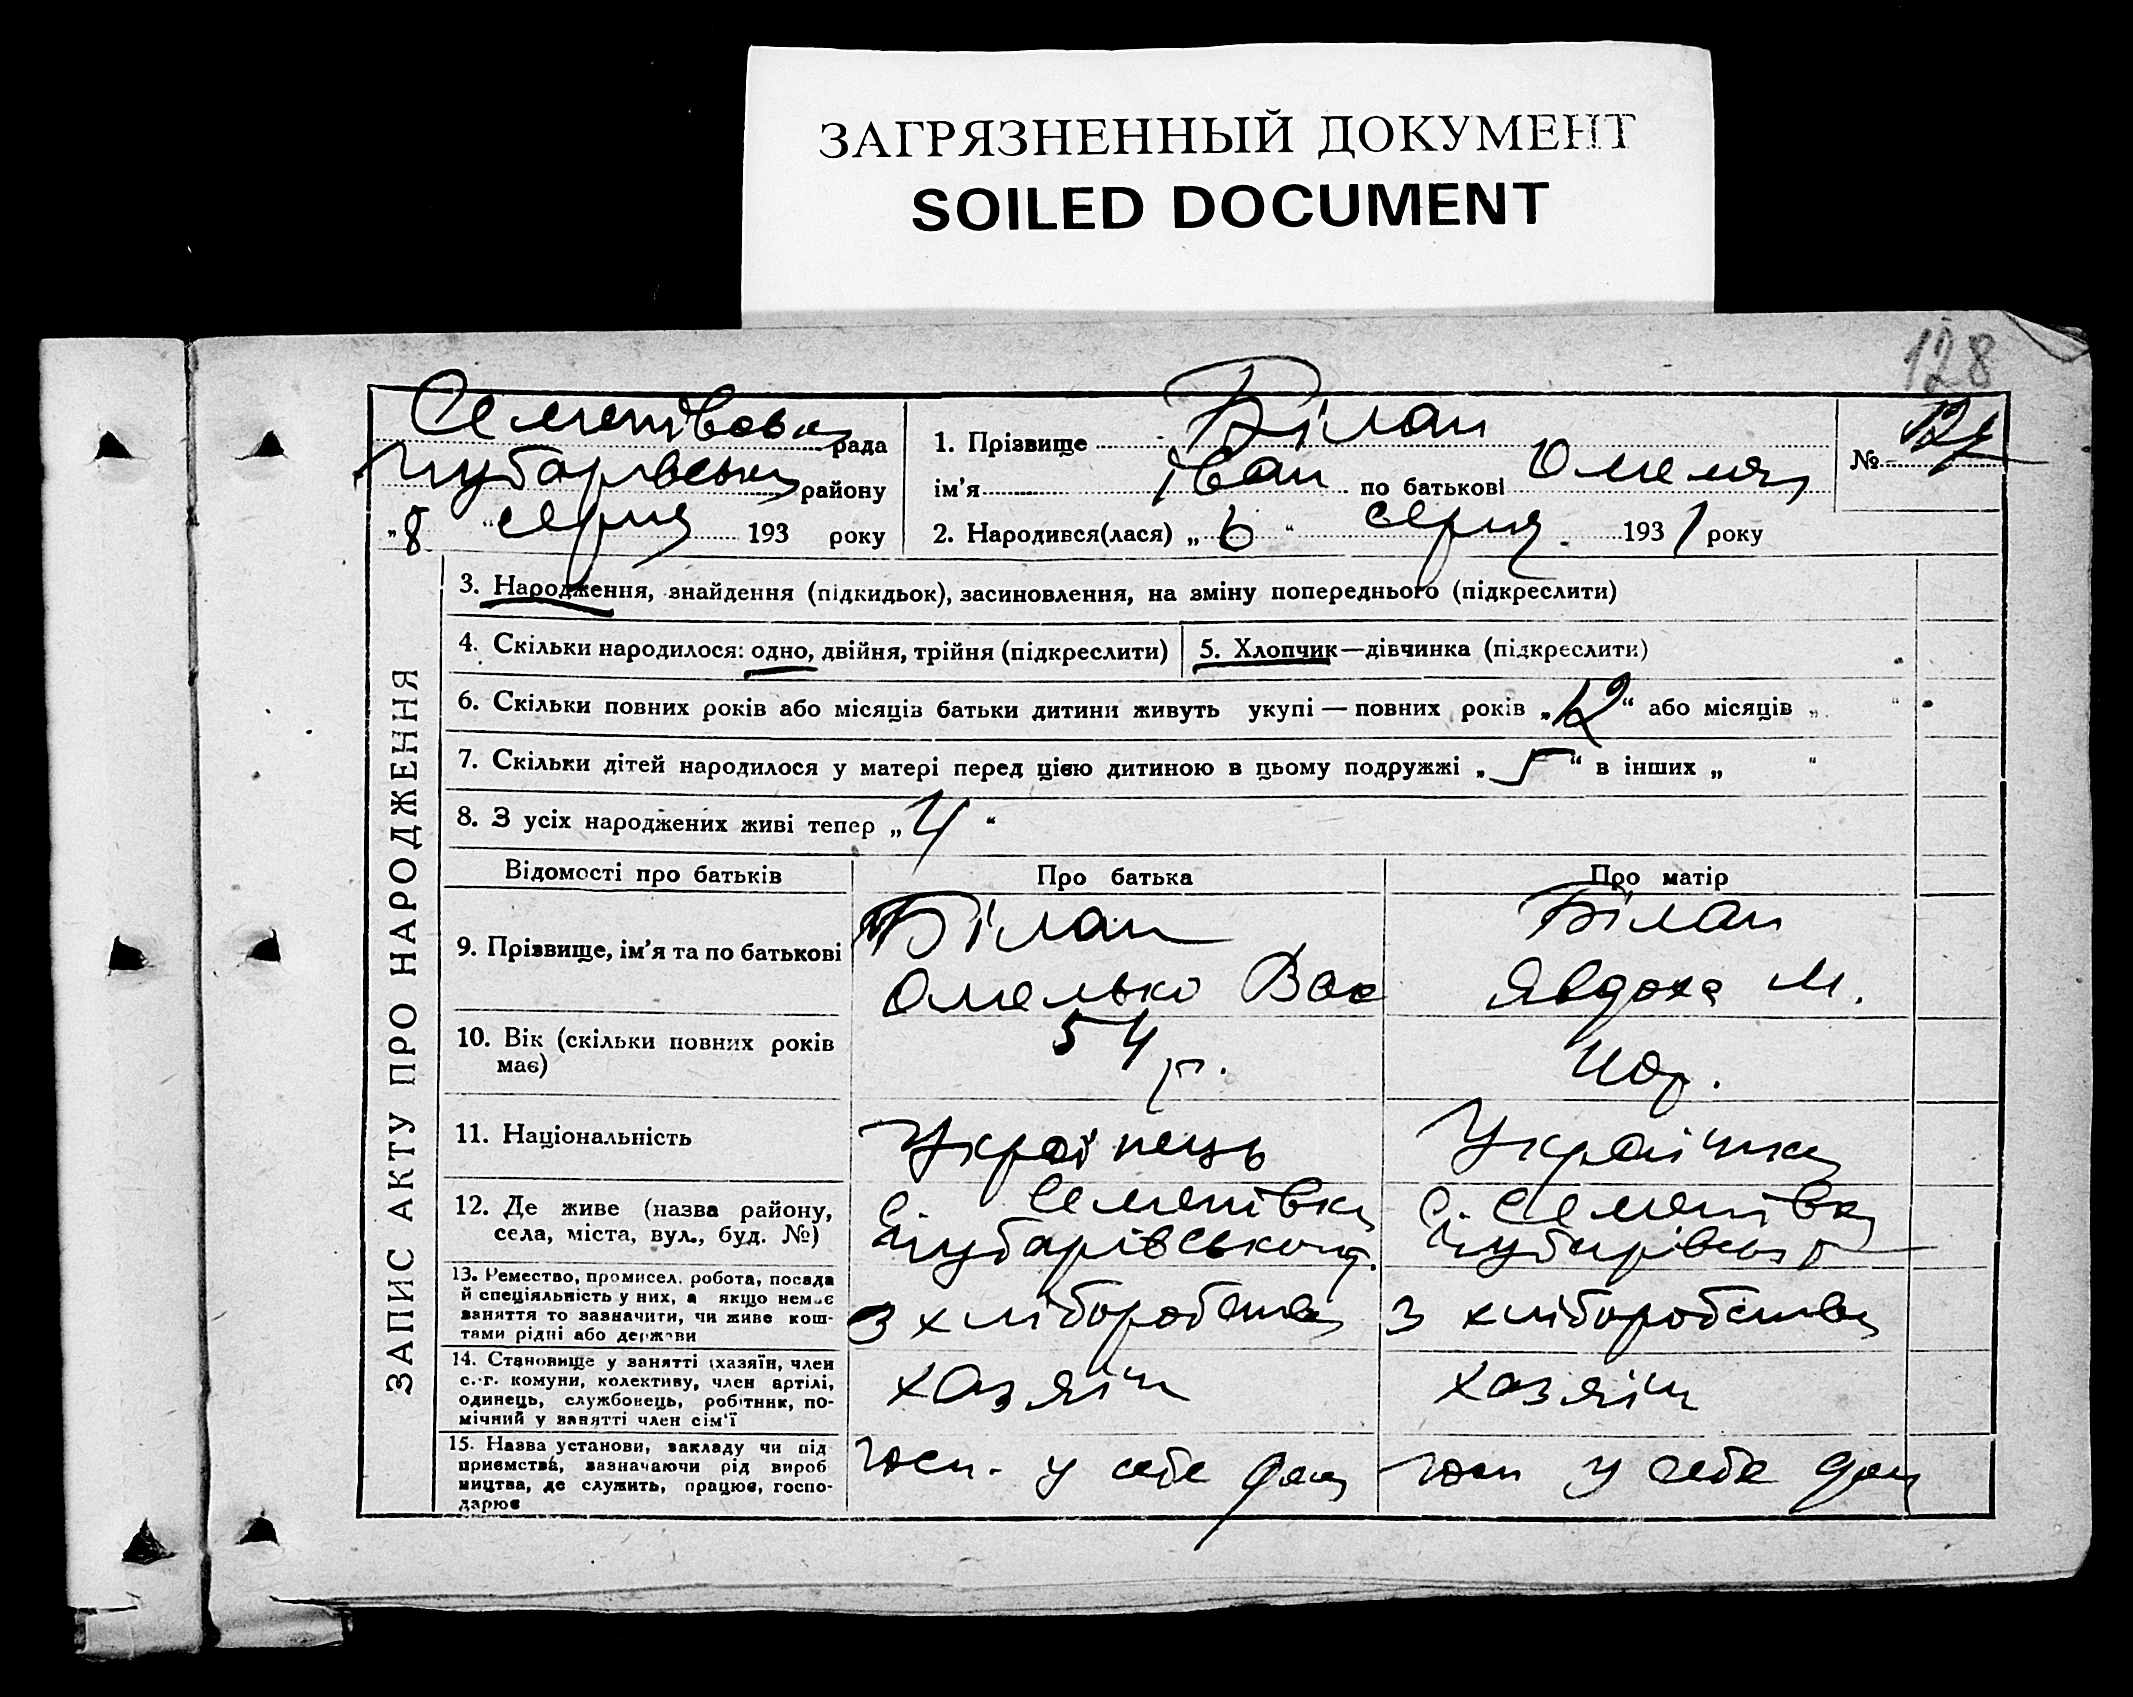 ЗАГРЯЗНЕННЫЙ ДОКУМЕНТ
SOILED DOCUMENT
128
ЗАПИС АКТУ ПРО НАРОДЖЕННЯ
Семенівська рада
Чубарівськ району
„8“ серпня 193 року
1. Прізвище Білан
ім'я Іван по батькові Омеля
№
2. Народився(лася) „6“ серпня 1931 року
3. Народження, знайдення (підкидьок), засиновлення, на зміну попереднього (підкреслити)
4. Скільки народилося: одно, двійня, трійня (підкреслити)
5. Хлопчик—дівчинка (підкреслити)
6. Скільки повних років або місяців батьки дитини живуть укупі — повних років „12“ або місяців „ “
7. Скільки дітей народилося у матері перед цією дитиною в цьому подружжі „5“ в інших „ “
8. З усіх народжених живі тепер „4“
Відомості про батьків Про батька Про матір
9. Прізвище, ім'я та по батькові
Білан
Омелько Вас
Білан
Явдоха М.
10. Вік (скільки повних років
має)
54 р.
40 р.
11. Національність
Українець
Українка
12. Де живе (назва району,
села, міста, вул., буд. №)
с. Семенівка
Чубарівського р.
с. Семенівка
Чубарівськ
13. Ремество, промисел. робота, посада
й спеціяльність у них, а якщо немає
заняття то зазначити, чи живе кош-
тами рідні або держави
З хліборобства
З хліборобства
14. Становище у занятті (хазяїн, член
с.-г. комуни, колективу, член артілі,
одинець, службовець, робітник, по-
мічний у занятті член сім'ї
хазяїн
хазяїн
15. Назва установи, закладу чи під
приємства, зазначаючи рід вироб
ництва, де служить, працює, госпо-
дарює
госп. у себе дома
госп у себе дома